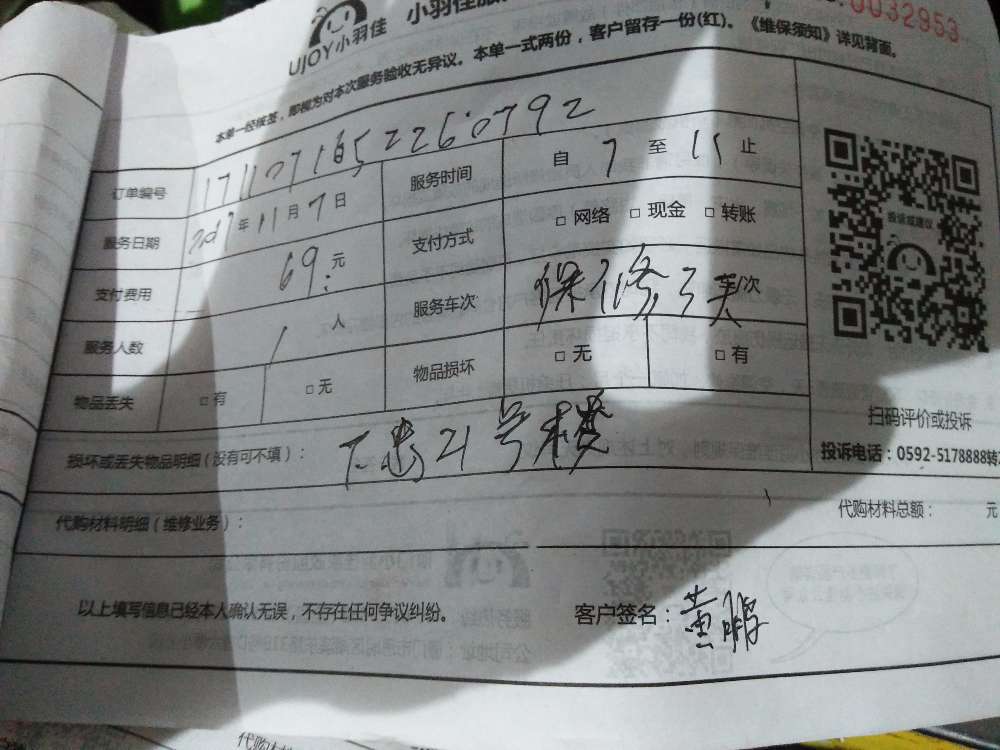 UJOY小羽佳 小羽佳服
0032953
本单一经核签，即视为对本次服务验收无异议。本单一式两份，客户留存一份(红)。《维保须知》详见背面。
订单编号
服务时间 自 7 至 15 止
服务日期 2017年11月7日
支付方式 □ 网络 □ 现金 □ 转账
支付费用 69.元
服务车次 保修3天 车/次
服务人数 1 人
物品损坏 □ 无 □ 有
物品丢失 □ 有 □ 无
损坏或丢失物品明细（没有可不填）： 21号楼
投诉或建议
扫码评价或投诉
投诉电话：0592-5178888转
代购材料明细（维修业务）：
代购材料总额： 元
以上填写信息已经本人确认无误，不存在任何争议纠纷。
客户签名：黄鹏
代购材料